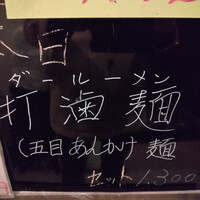 今日
ダールーメン
打滷麺
(五目あんかけ麺
セット1,300